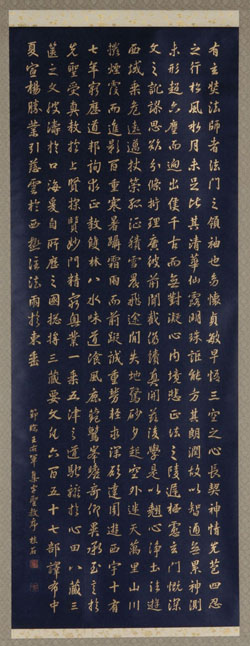 有玄奘法師者法門之領袖也幼懷貞敏早悟三空之心長契神情先苞四忍
之行松風水月未足比其清華仙露明珠詎能方其朗潤故以智通無累神測
未形超六塵而迥出隻千古而無對凝心內境悲正法之陵遲栖慮玄門慨深
文之訛謬思欲分條析理廣彼前聞截偽續真開茲後學是以翹心淨土法遊
西域乘危遠邁杖策孤征積雪晨飛途間失地驚砂夕起空外迷天萬里山川
撥煙霞而進影百重寒暑躡霜雨而前蹤誠重勞輕求深願達周遊西宇十有
七年窮歷道邦詢求正教雙林八水味道餐風鹿菀鷲峯瞻奇仰異承至言於
先聖受真教於上賢探賾妙門精窮奧業一乘五律之道馳驟於心田八藏三
篋之文波濤於口海爰自所歷之國總將三藏要文凡六百五十七部譯布中
夏宣揚勝業引慈雲於西極注法雨於東垂
節臨王右軍集字聖教序 桂石